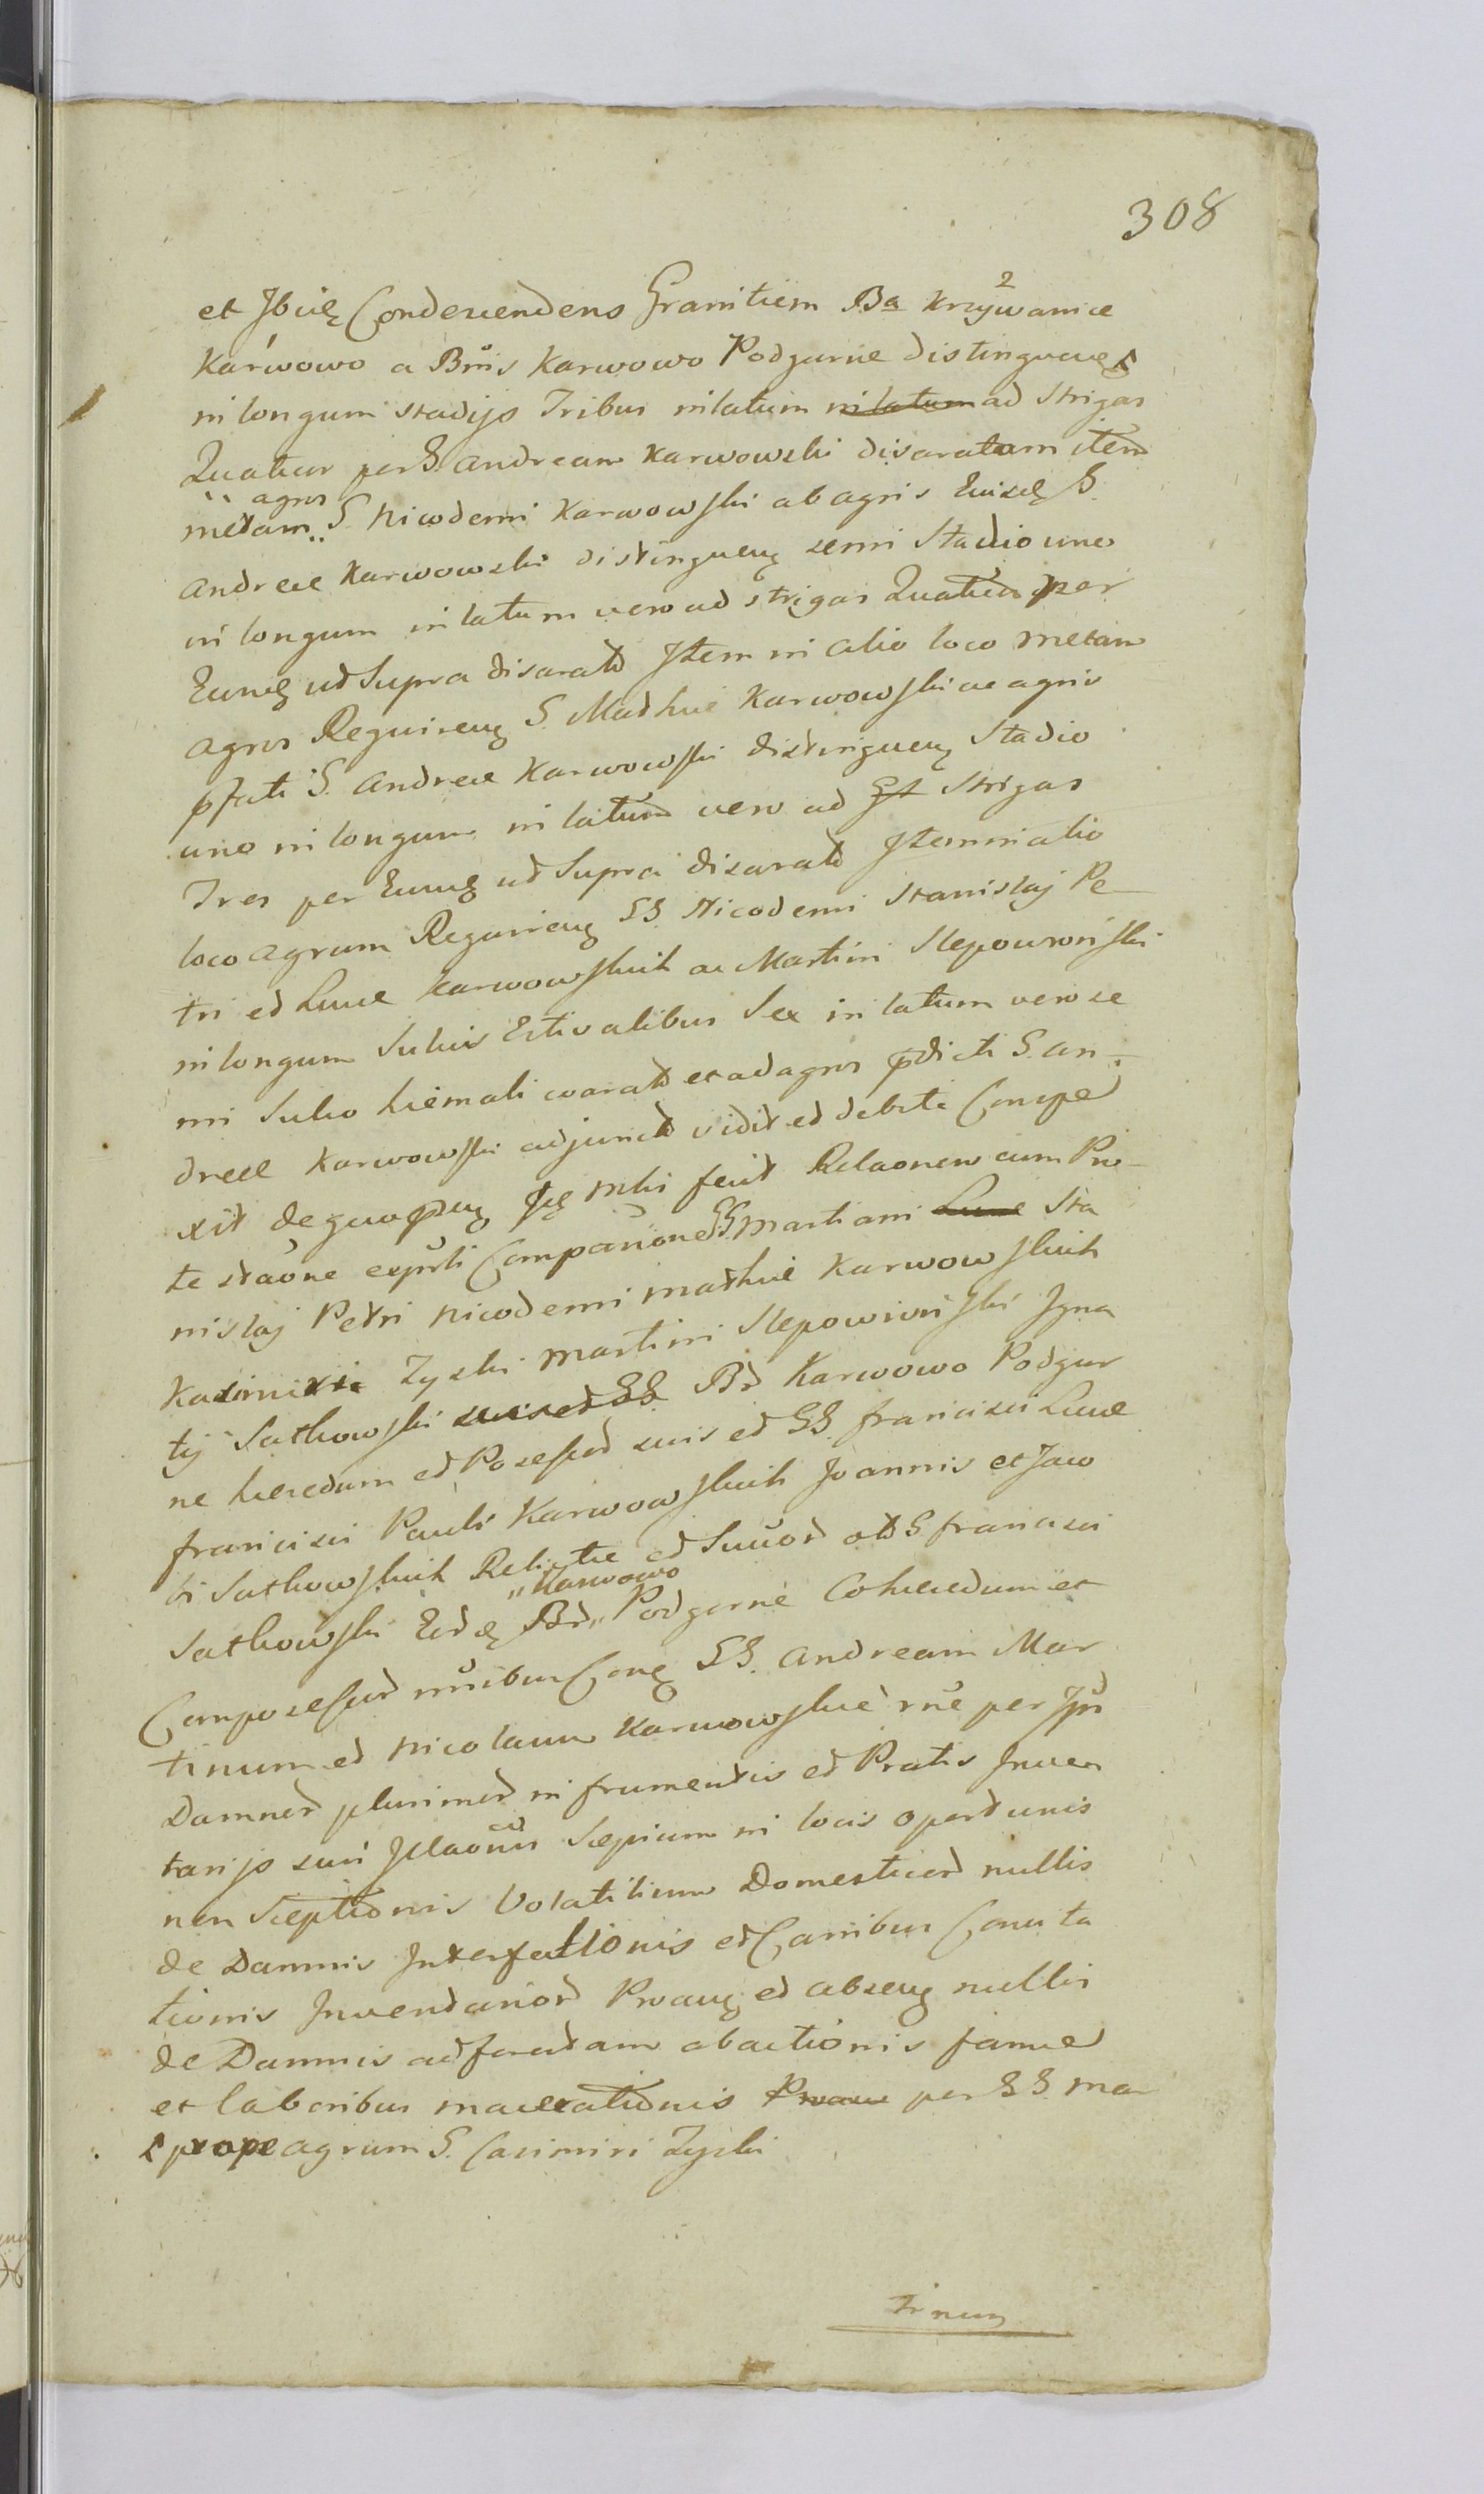 308
et Jbidę Condescendens Granitiem Ba Krzywanice 2
Karwowo a Bnis Karwowo Podgurne distinguenę
in longum stadijs Tribus in latum in latum ad Strigas
Quatuor per G. Andream Karwowski disaratam item
metam agros G. Nicodemi Karwowski ab agris Eiusdę G.
Andreae Karwowski distinguenę semi Stadio uno
in longum in latum vero ad strigas Quatuor per
Eundę ud Supra disarat Jtem in alio loco metam
agros Reguirenę G. Mathię Karwowski ac agris
pfati G. Andreae Karwowski distinguenę Stadio
uno in longum in latum vero ad Strigas
Tres per Eundę ud Supra disarat Jtem in alio
loco agrum Reguirenę GG. Nicodemi Stanislaj Pe
tri ed Lucae Karwowskich ac Martini Slepowroński
in longum Sulcis Estivalibus Sex in latum vero se
mi Sulco hiemali coarat et ad agros pdicti G. An
dreae Karwowski adjunct vidit ed debite Conspe
xit de guo ... mihi fecit Relaonem cum Pro
te staone expti Comparione GG. Martiani Lucae Sta
nislaj Petri Nicodemi Mathię Karwowskich
Kasimiri Zyski Martini Slepowroński Jgna
tij Sathowski suis ed GG. Bd Karwowo Podgur
ne haeredum ed Posessud suis ed GG. francisci Lucae
francisci Pauli Karwowskich Joannis et Jaco
bi Sathowskich Relictae ed Succod olt G francisci
Sathowski Eordę Bd "Karwowo" Podgorne Cohaeredum et
Composessud nnibus Conę GG. Andream Mar
tinum ed Nicolaum Karwowskie rne per Jpn
Damnod plurimod in frumentis ed Pratis Jnven
tarijs suis Jllaonis Saepium in locis opordunis
non Saeptionis Volatilium Domesticod nullis
de Damnis Jnterfectionis ed Canibus Concita
tionis Jnvendariod Proauę ed absenę nullis
de Damnis ad foradam abactionis famae
et laboribus macerationis per GG. Mar
prope agrum G. Casimiri Zyski
tinum